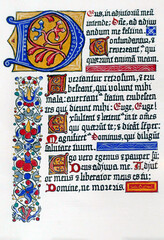 Deus, in adjutorium meū
intende: Dñe, ad adjuv
andum me festina.
Confundantur, &
revereant, qui
quærunt animam meam.
Avertantur retrorsum, & eru
bescant, qui volunt mihi
mala: avertant statim erubesc
entes, qui dicunt mihi: Euge, Euge.
Exultent & lætent in te omes
qui quærūt te; & dicāt semper:
Magnificet Dominus, qui diligūt
salutare tuum.
Ego vero egenus & pauper sū:
Deus adjuva me. Adjutor
meus & liberator meus es tu:
Domine, ne moreris.